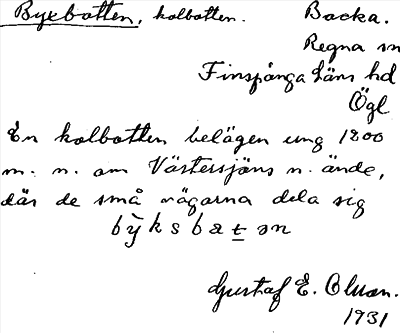 Byxbotten, kolbotten. Backa.
Regna sn
Finspånga läns hd
Ögl
En kolbotten belägen ung 1200
m. n. om Västersjöns n. ände,
där de små vägarna dela sig
by̆ksbat̲ən
Gustaf E. Olsson.
1931